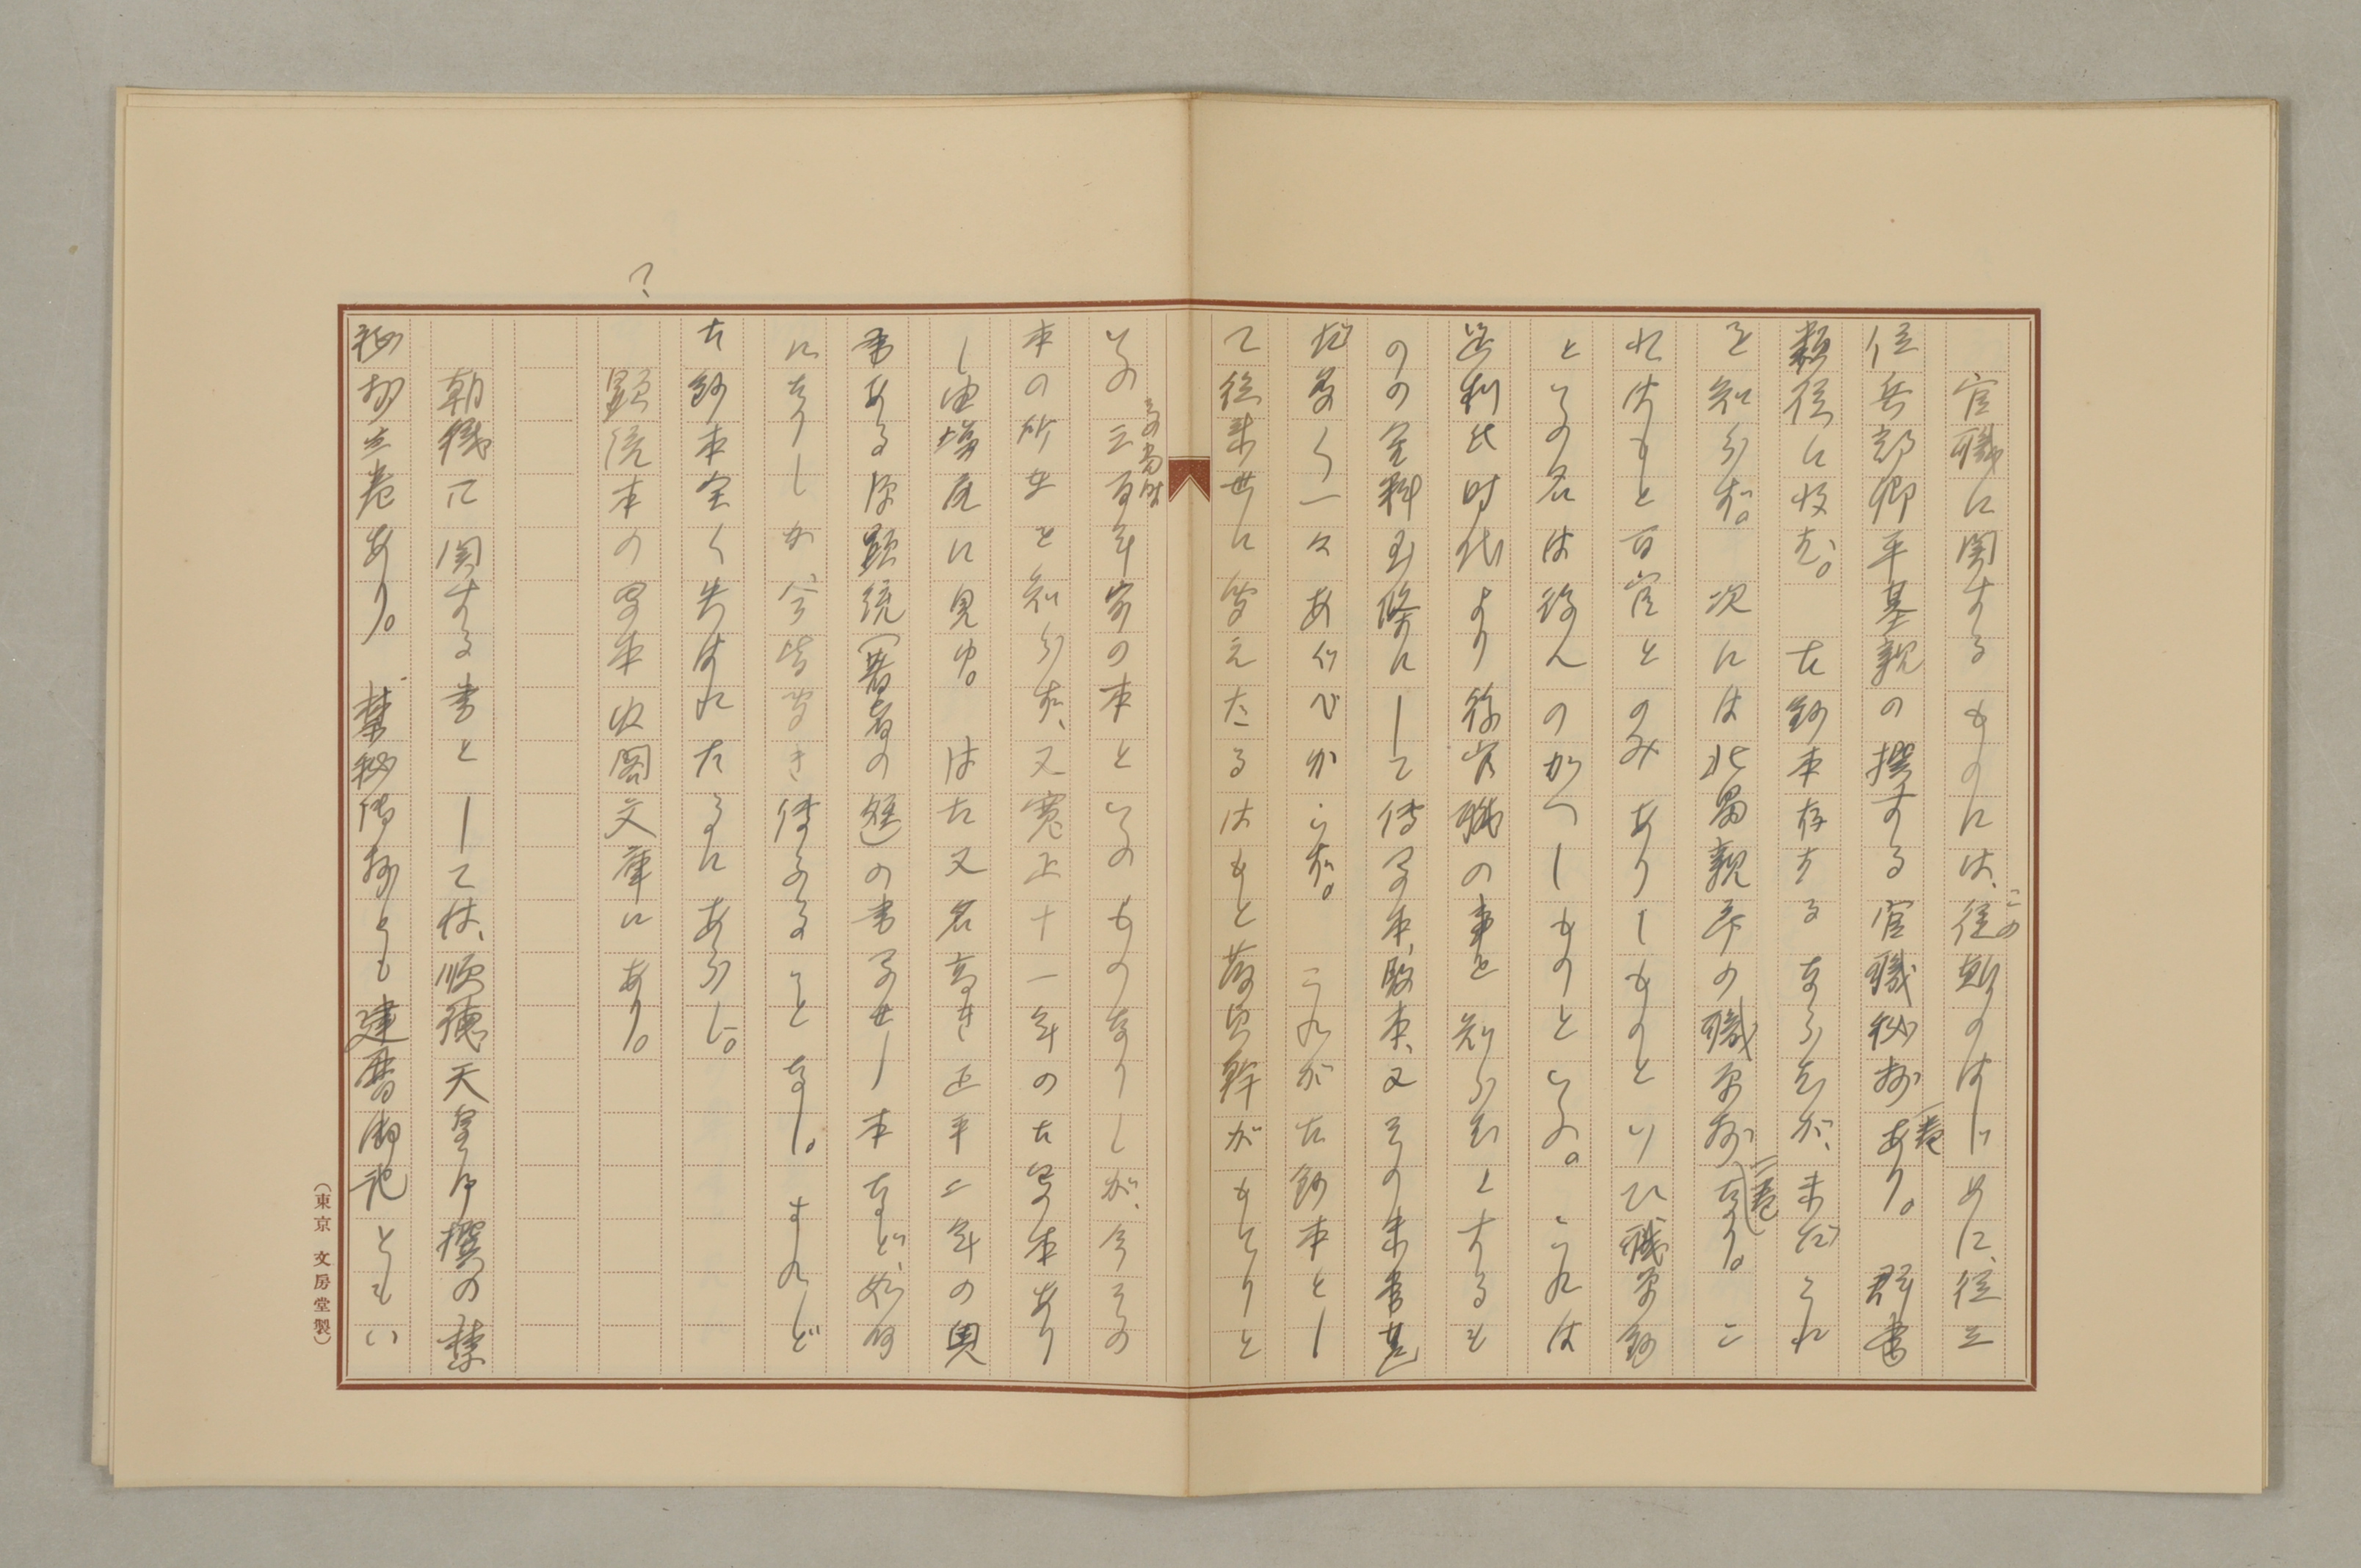 官職に関するものには、この従類のはじめに、従三
位兵部卿平基親の撰する官職秘抄一巻あり。群書
類従に收む。古鈔本存するならむが、未だこれ
を知らず。次には北畠親房の職原抄二巻なり。こ
れはもと百官とのみありしものといひ、職原鈔
といふの名は後人のかへしものといふ。これは
足利氏時代より後官職の事を知らむとするも
のの金科玉條にして傳写本、版本、又その末書甚
だ多く一々あぐべからず。これが古鈔本とし
て従来世に聞えたるはもと蔵貞幹がもてりと
いふ三百年前の本といふものなりしが、今その
本の所在を知らず、又寛正十一年の古写本あり
し由塙尾に見ゆ。はた又名高き正平二年の奥
書ある源顕統(著者の姪)の書写せし本など、好何
になりしか、今皆聞き傳ふることなし。されど
古鈔本全く失はれたるにあらじ。
?
顕統本の写本内閣文庫にあり。
朝儀に関する書としては、順徳天皇御撰の禁
秘抄三巻あり。禁秘御抄とも建暦御記ともい
(東京 文房堂製)